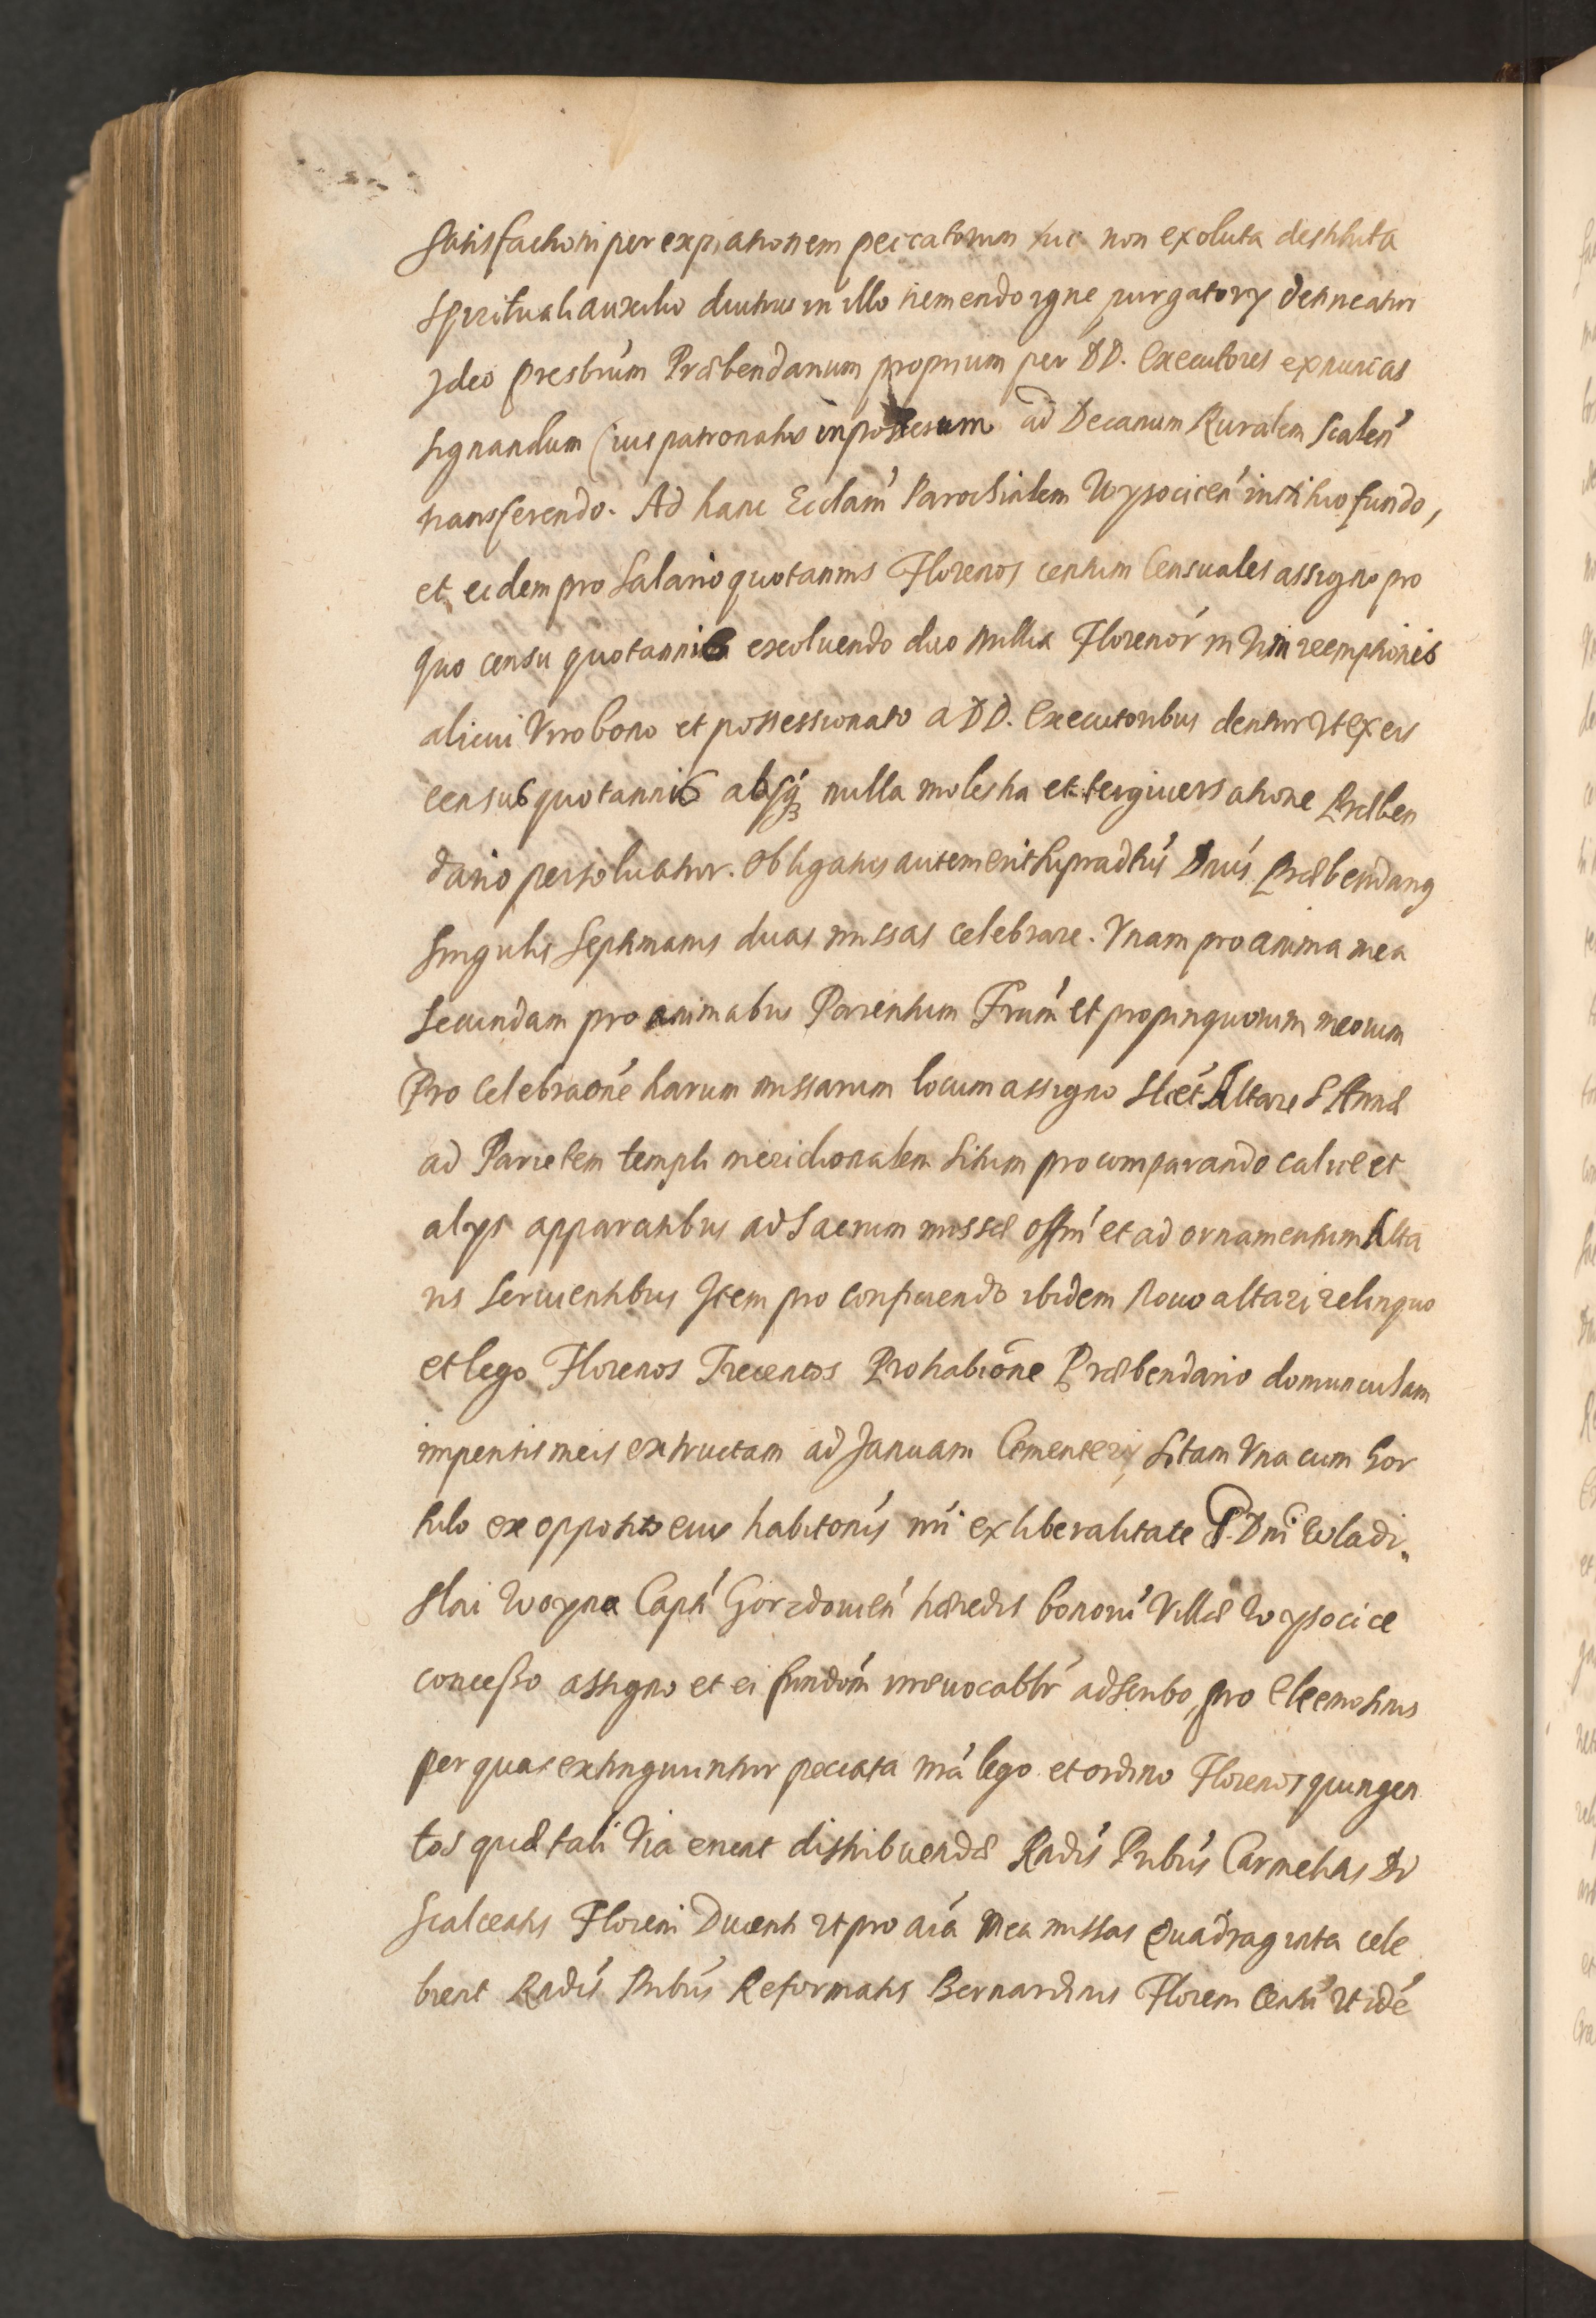 satisfactioni per expiationem peccatorum hic non exoluta destituta
spirituali auxilio diutius in illo tremendo igne purgatory detineatur
Ideo presbrúm Præbendarium proprium per DD. Executores exnunc as
signandum (ius patronatus in posterum ad Decanum Ruralem Scalen̄
transferendo. Ad hanc Ecclam̄ Parochialem Wysocicen̄ instituo fundo,
et eidem pro salario quotannis Florenos centum Censuales assigno pro
quo censu quotannis exoluendo duo millia Florenor̄ in vim reemptionis
alicui Viro bono et possessionato a DD. Executoribus dentur Vt ex eis
census quotannis absq́ȝ nulla molestia et tergiuersatione Præben
dario persoluatur. Obligatus autem erit supradtús Dnús Præbendariꝯ
singulis septimanis duas missas celebrare. Vnam pro anima mea
secundam pro animabus Parentum Frūm et propinquorum meorum
Pro Celebraōne harum missarum locum assigno scēt Altare S Annæ
ad Parietem templi meridionalem situm pro comparando calice et
alys apparatibus ad Sacrum missæ offm̄ et ad ornamentum Alta
ris seruientibus Item pro conficiendo ibidem Nouo altari relinquo
et lego Florenos Trecentos Pro habiōne Præbendario domunculam
impensis meis extructam ad Januam Cementery sitam Vna cum hor
tulo ex opposito eius habitonís mi ex liberalitate P. Dni Wladi„
slai Woyna Capn̄ Gorzdouien̄ hæredis bonorū Villæ Wysocice
concesso assigno et ei fundóm irreuocabltr̄ adscribo, pro Eleemosinis
per quas extinguuntur peccata mā lego et ordino Florenos quingen
tos quæ tali Via erunt distribuendæ Rndīs Pribūs Carmelitas Di
scalceatis Floreni Ducenti Vt pro aīa mea missas Quadraginta cele
brent Rndīs Pribūs Reformatis Bernardinis Floreni Centū Vt idē